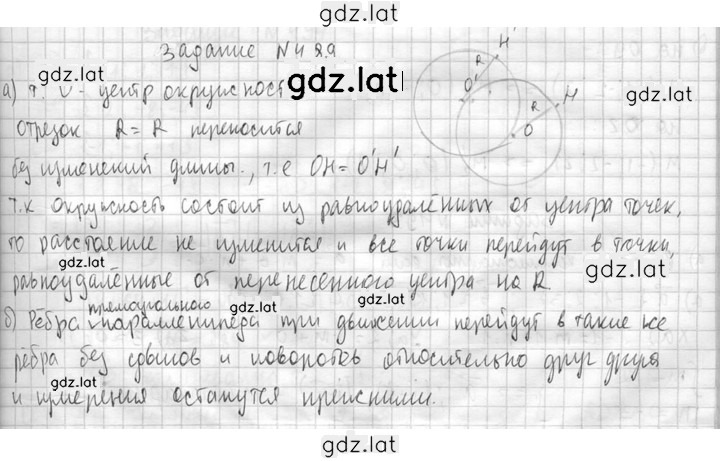 gdz.lat
Задание N489
gdz.lat
gdz.lat
а) т. О - центр окружност
gdz.lat
отрезок R=R переносится
R
H'
O'
R
H
O
без изменений длины., т.е OH=O'H'
т.к окружность состоит из равноудалённых от центра точек,
то расстояние не изменится и все точки перейдут в точки,
gdz.lat
gdz.lat
равноудалённые от перенесенного центра на R.
прямоугольного
gdz.lat
б) Рёбра параллелипеда при движении перейдут в такие же
gdz.lat
рёбра без сдвигов и поворотов относительно друг друга
gdz.lat
и измерения останутся прежними.
gdz.lat